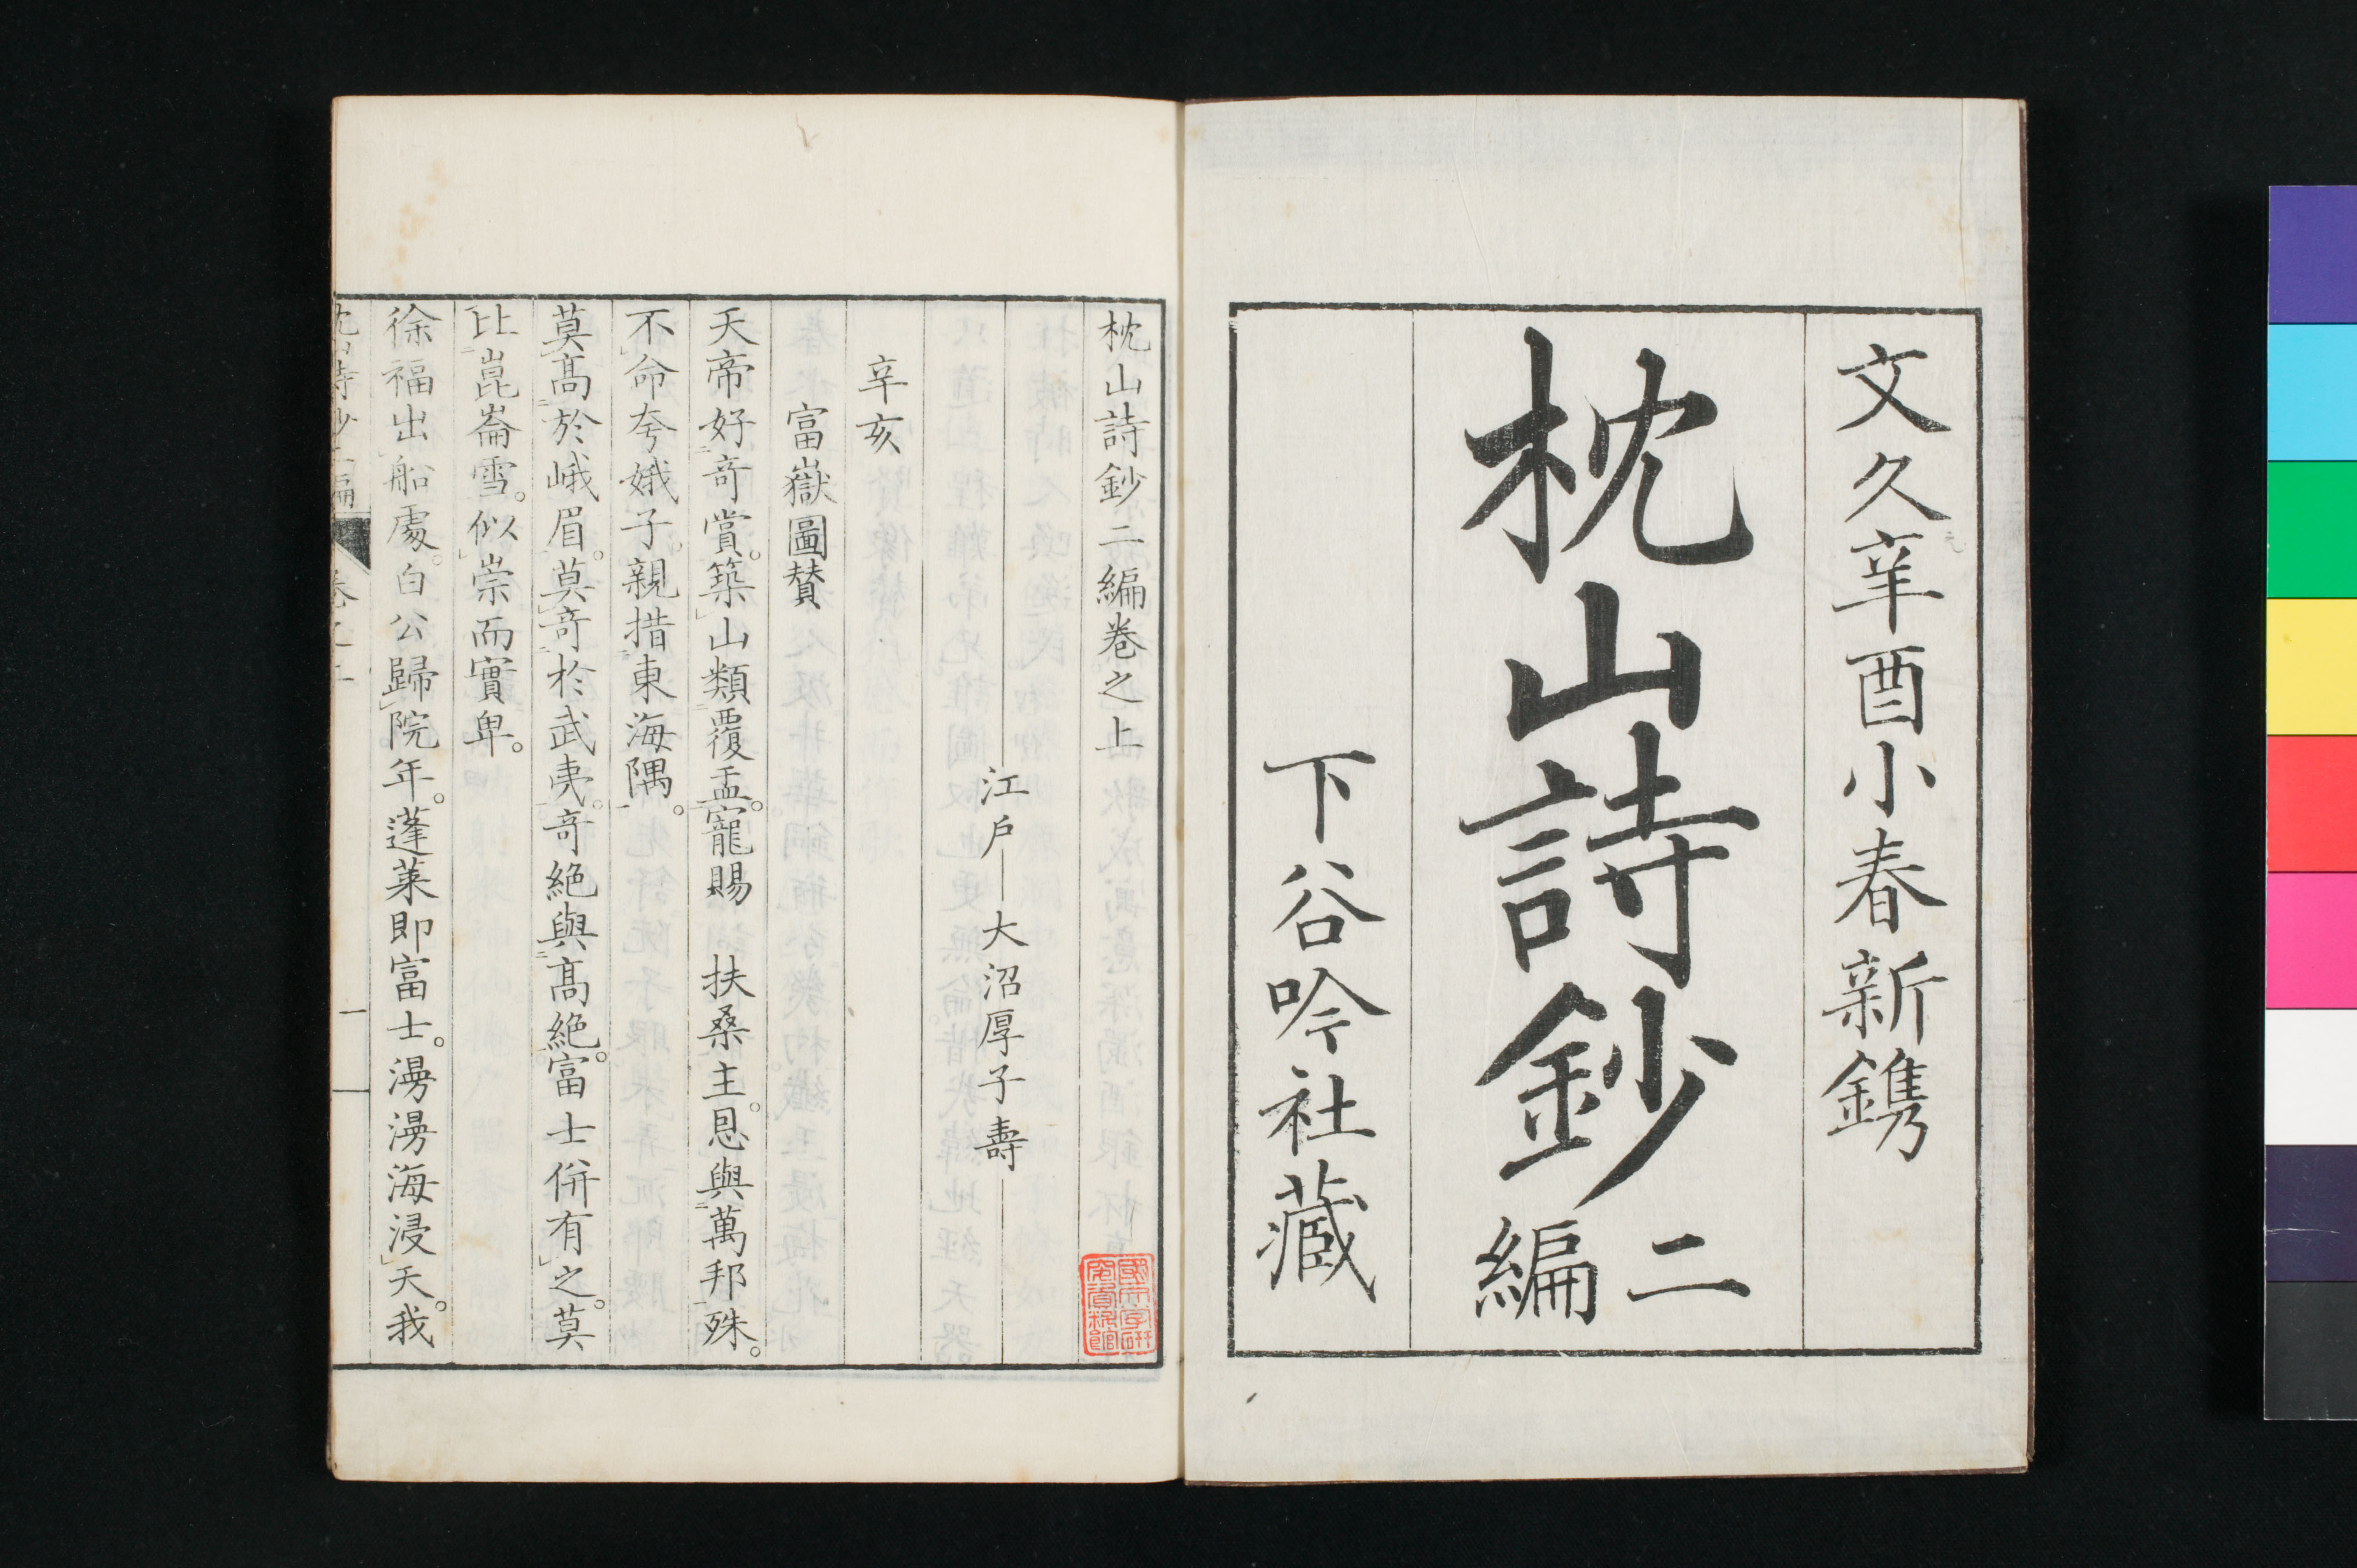 文久辛酉小春新鐫
枕山詩鈔二編
下谷吟社藏
枕山詩鈔二編卷之上
江戸 大沼厚子壽
辛亥
富嶽圖賛
天帝好奇賞。築山類覆盂。寵賜 扶桑主。恩與萬邦殊。
不命夸娥子。親措東海隅。
莫髙於峨眉。莫奇於武夷。奇絶與髙絶。富士併有之。莫
比崑崙雪。似崇而實卑。
徐福出船處。白公歸院年。蓬萊即富士。漫漫海浸天。我